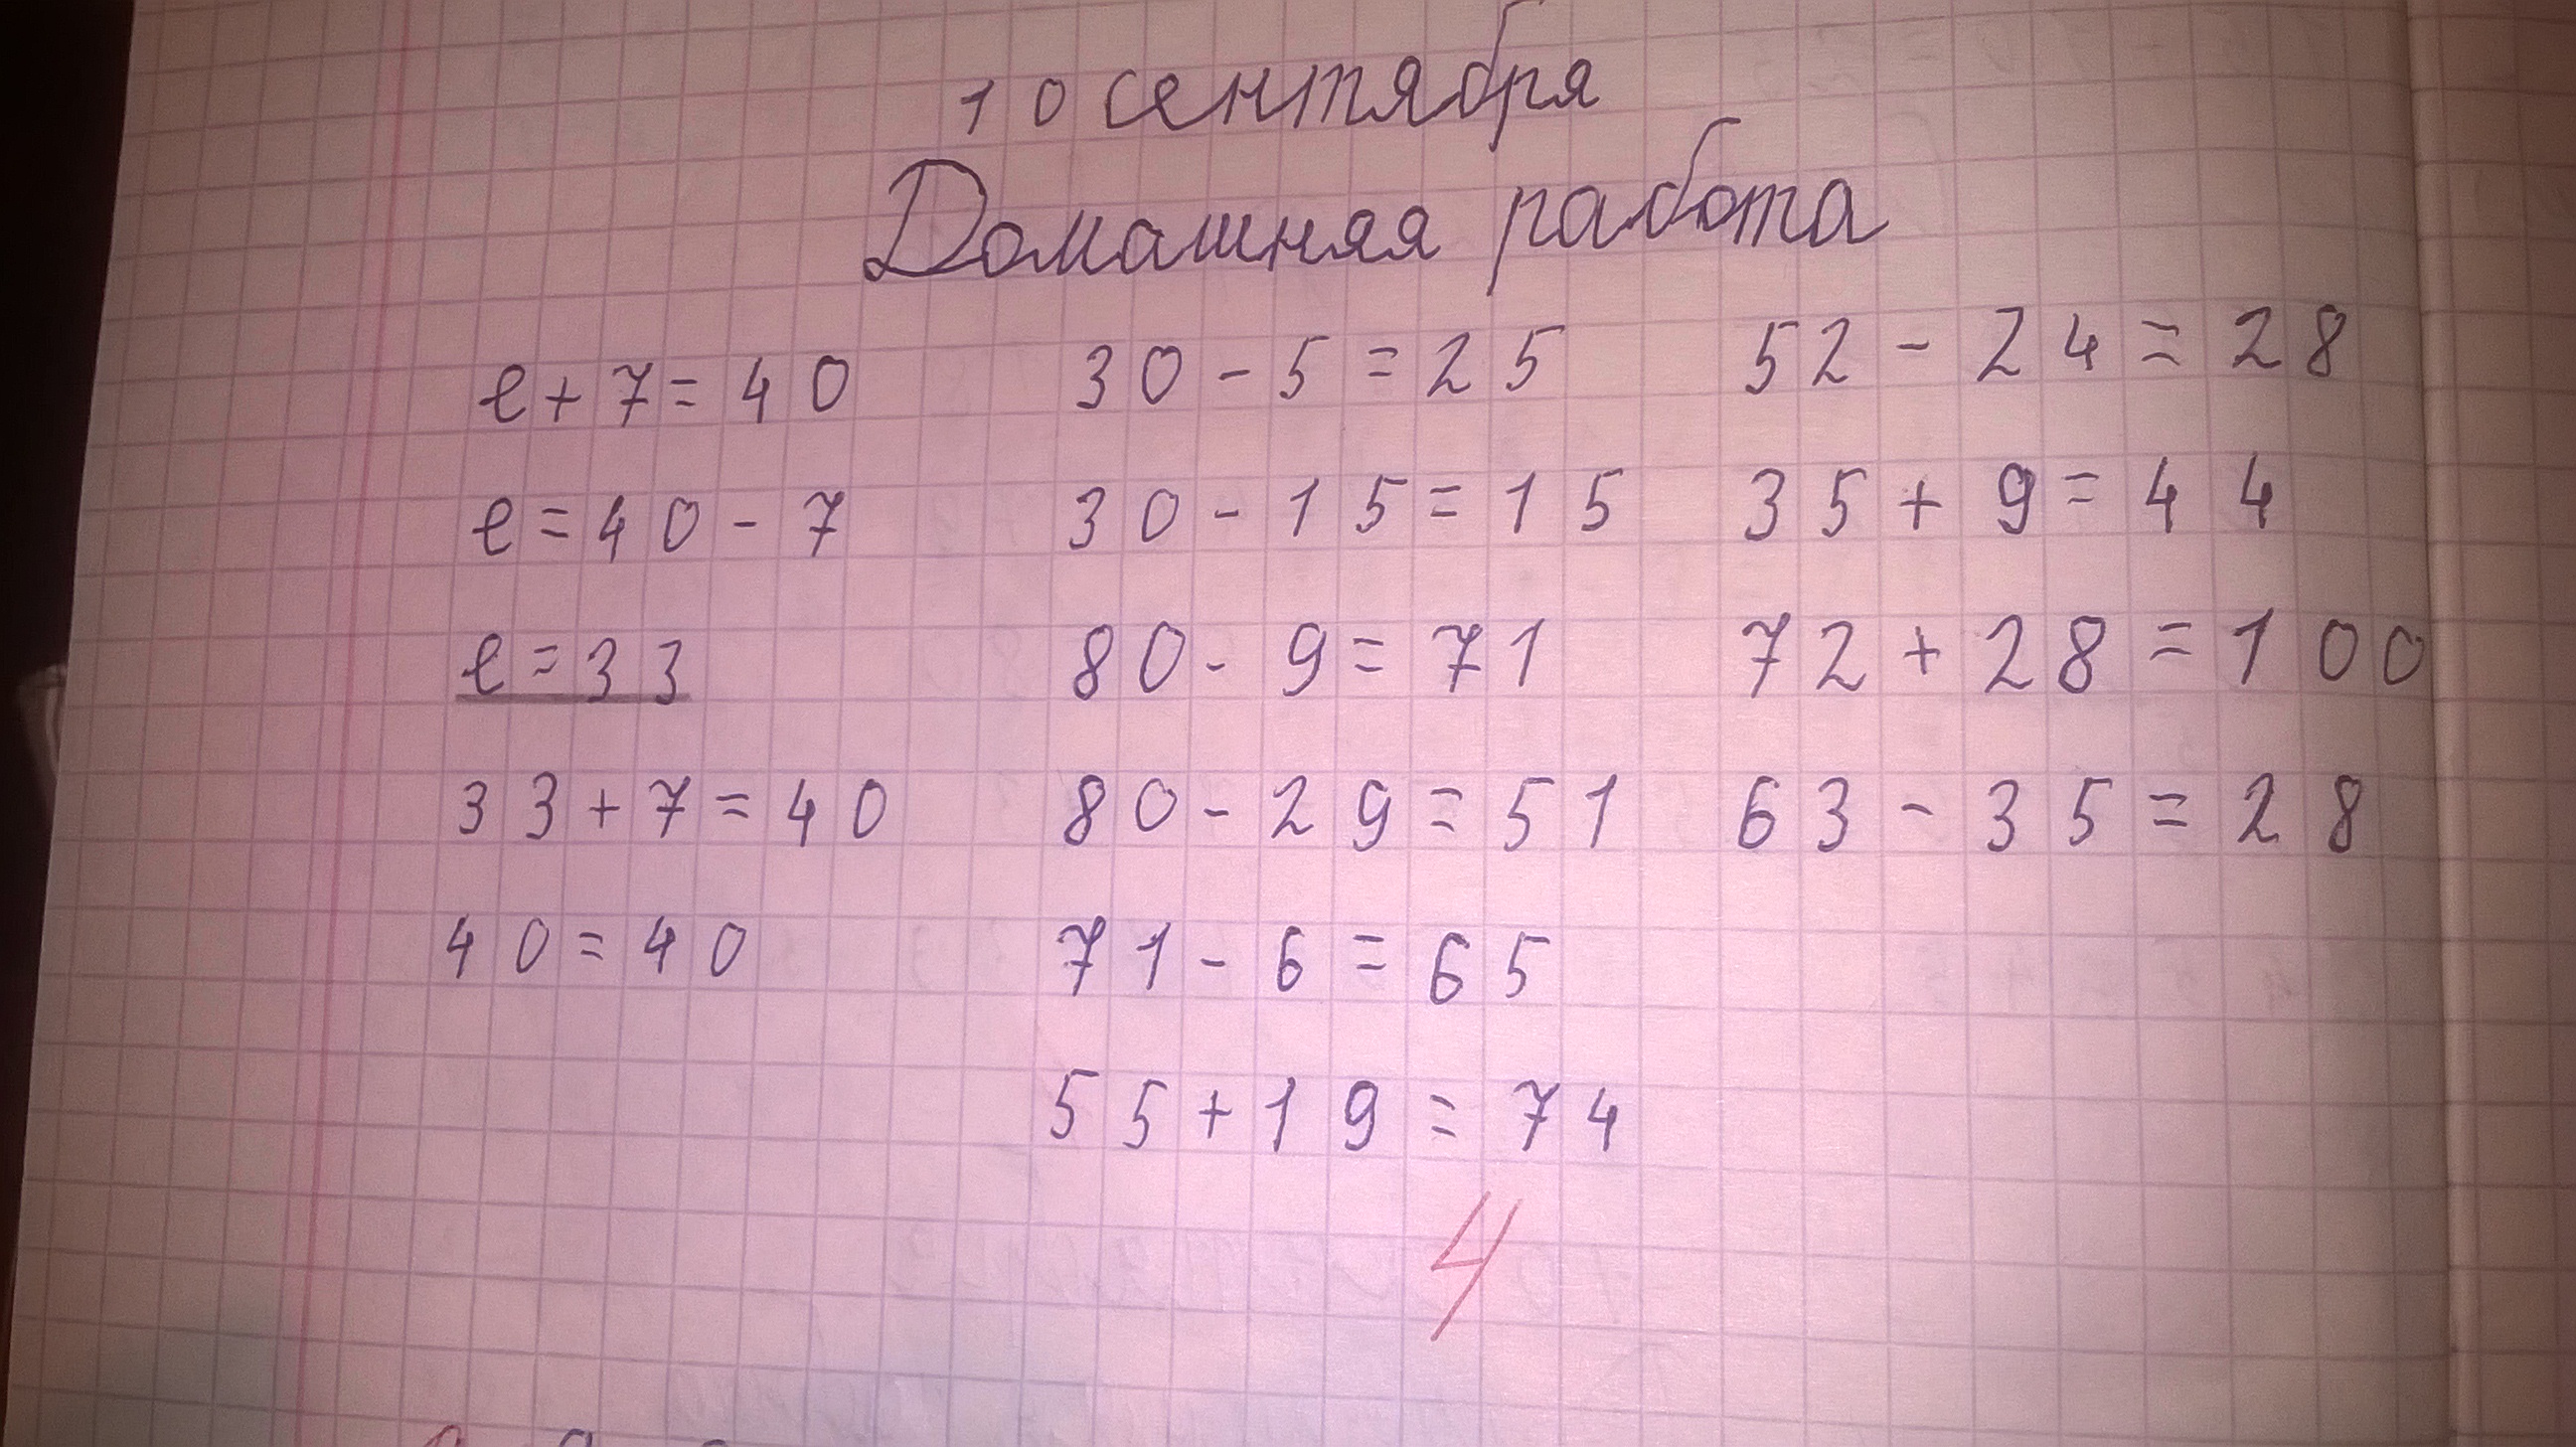 10 сентября
Домашняя работа
е + 7 = 40
е = 40 - 7
е = 33
33 + 7 = 40
40 = 40
30 - 5 = 25
30 - 15 = 15
80 - 9 = 71
80 - 29 = 51
71 - 6 = 65
55 + 19 = 74
52 - 24 = 28
35 + 9 = 44
72 + 28 = 100
63 - 35 = 28
4